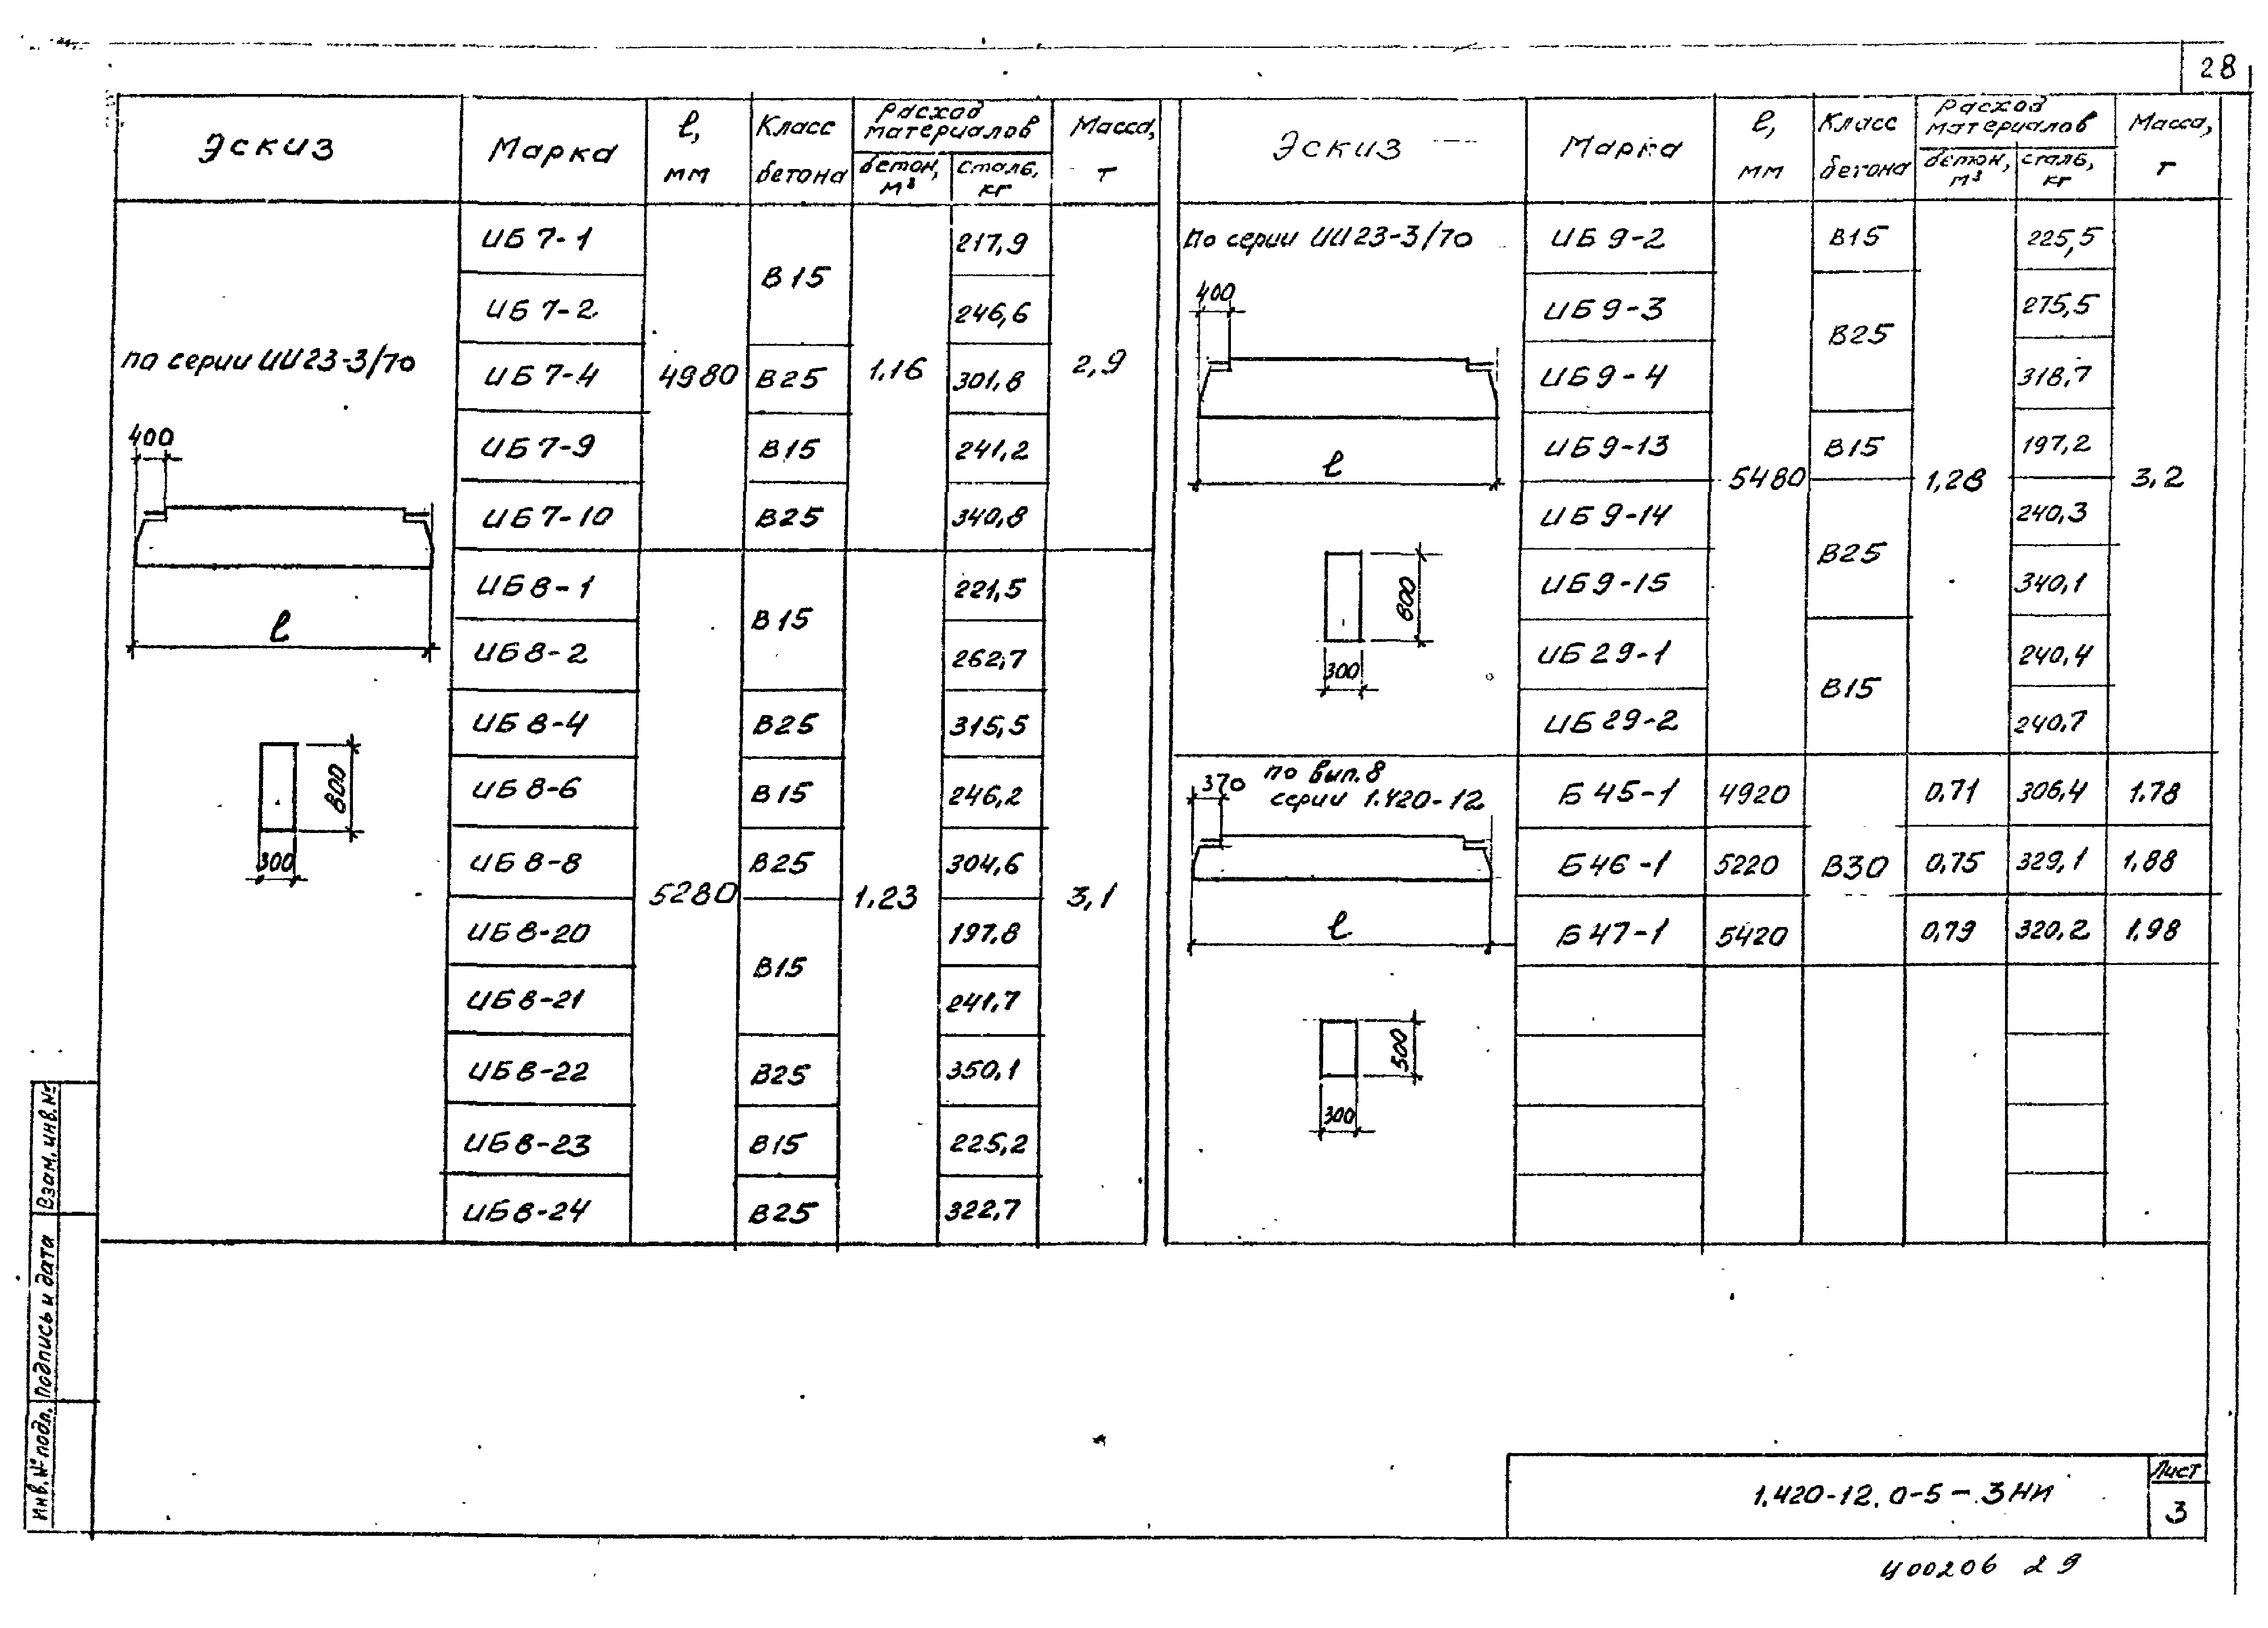 28
Эскиз Марка ℓ, мм Класс бетона Расход материалов бетон, м³ сталь, кг Масса, т
по серии ИИ23-3/70
400
ℓ
800
300
ИБ 7-1 4980 В15 1.16 217,9 2,9
ИБ 7-2 246,6
ИБ 7-4 В25 301,8
ИБ 7-9 В15 241,2
ИБ 7-10 В25 340,8
ИБ 8-1 5280 В15 1.23 221,5 3,1
ИБ 8-2 262,7
ИБ 8-4 В25 315,5
ИБ 8-6 В15 246,2
ИБ 8-8 В25 304,6
ИБ 8-20 В15 197,8
ИБ 8-21 241,7
ИБ 8-22 В25 350,1
ИБ 8-23 В15 225,2
ИБ 8-24 В25 322,7
Эскиз Марка ℓ, мм Класс бетона Расход материалов бетон, м³ сталь, кг Масса, т
по серии ИИ23-3/70
400
ℓ
800
300
ИБ 9-2 5480 В15 1,28 225,5 3,2
ИБ 9-3 В25 275,5
ИБ 9-4 318,7
ИБ 9-13 В15 197,2
ИБ 9-14 В25 240,3
ИБ 9-15 340,1
ИБ 29-1 В15 240,4
ИБ 29-2 240,7
по вып. 8
серии 1.420-12
370
ℓ
500
300
Б 45-1 4920 В30 0,71 306,4 1.78
Б 46-1 5220 0,75 329,1 1,88
Б 47-1 5420 0,79 320,2 1,98
Взам. инв. №
Подпись и дата
Инв. № подл.
1.420-12. 0-5-3НИ
Лист
3
Ц00206 29